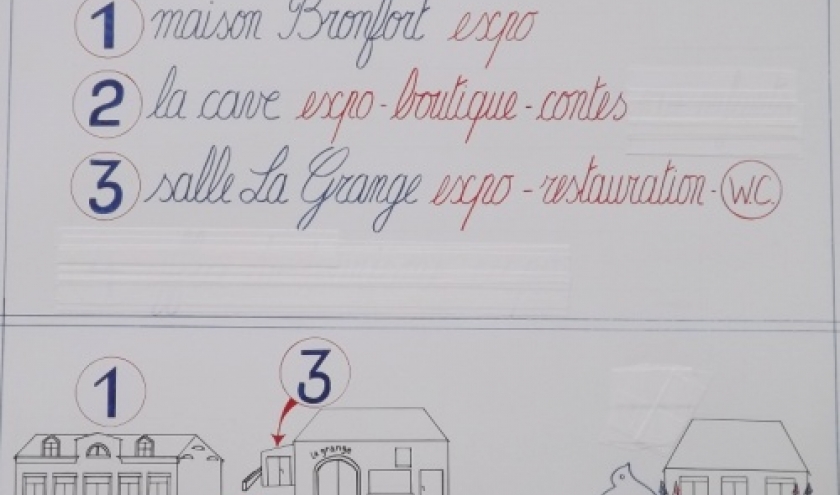 1 maison Bronfort expo
2 la cave expo - boutique - contes
3 salle La Grange expo - restauration - W.C.
1
3
la grange